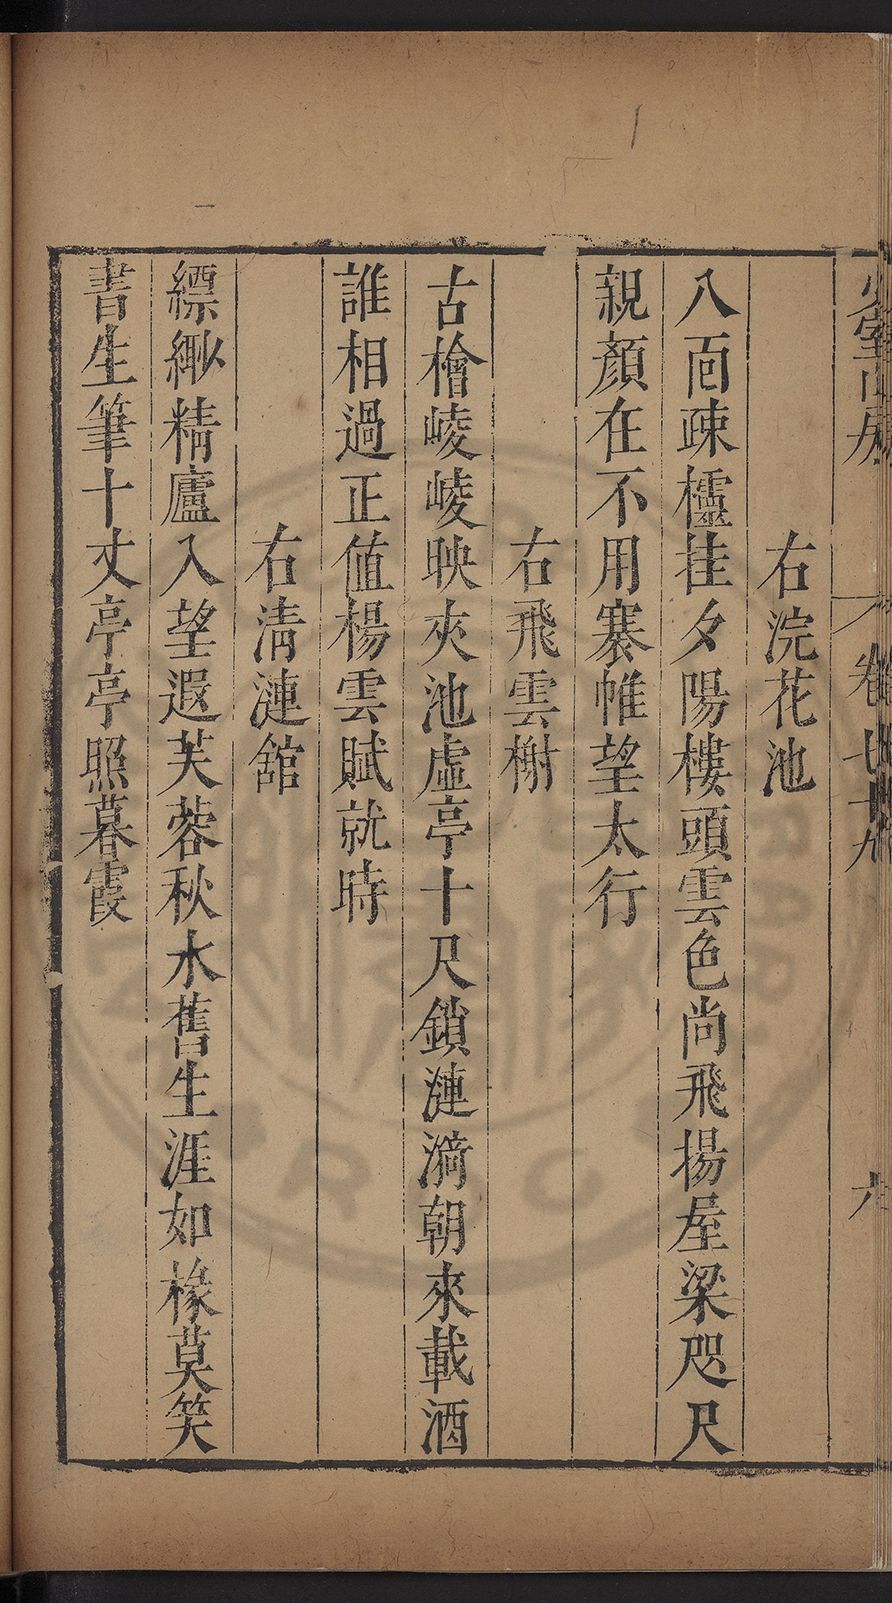 少室山房
卷七十九
六
右浣花池
八面疎櫺挂夕陽樓頭雲色尚飛揚屋梁咫尺
親顏在不用褰帷望太行
右飛雲榭
古檜崚崚映夾池虛亭十尺鎖漣漪朝來載酒
誰相過正値楊雲賦就時
右淸漣舘
縹緲精廬入望遐芙蓉秋水舊生涯如椽莫笑
書生筆十丈亭亭照暮霞